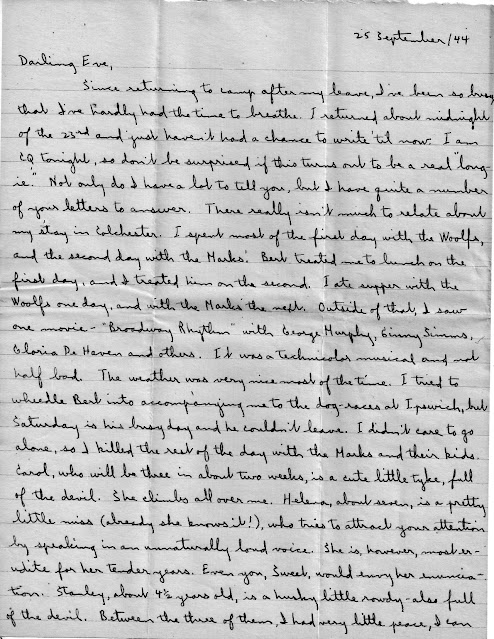 25 September/44
Darling Eve,
Since returning to camp after my leave, I've been so busy
that I've hardly had the time to breathe. I returned about midnight
of the 23rd and just haven't had a chance to write 'til now. I am
CQ tonight, so don't be surprised if this turns out to be a real "long-
ie." Not only do I have a lot to tell you, but I have quite a number
of your letters to answer. There really isn't much to relate about
my stay in Colchester. I spent most of the first day with the Woolfs,
and the second day with the Marks'. Bert treated me to lunch on the
first day, and I treated him on the second. I ate supper with the
Woolfs one day, and with the Marks the next. Outside of that, I saw
one movie - "Broadway Rhythm" with George Murphy, Ginny Simms,
Gloria De Haven and others. It was a technicolor musical and not
half bad. The weather was very nice most of the time. I tried to
wheedle Bert into accompanying me to the dog-races at Ipswich, but
Saturday is his busy day and he couldn't leave. I didn't care to go
alone, so I killed the rest of the day with the Marks and their kids.
Carol, who will be three in about two weeks, is a cute little tyke, full
of the devil. She climbs all over me. Helena, about seven, is a pretty
little miss (already she knows it!), who tries to attract your attention
by speaking in an unnaturally loud voice. She is, however, most er-
udite for her tender years. Even you, Sweet, would envy her enuncia-
tion. Stanley, about 4½ years old, is a husky little rowdy - also full
of the devil. Between the three of them, I had very little peace, I can